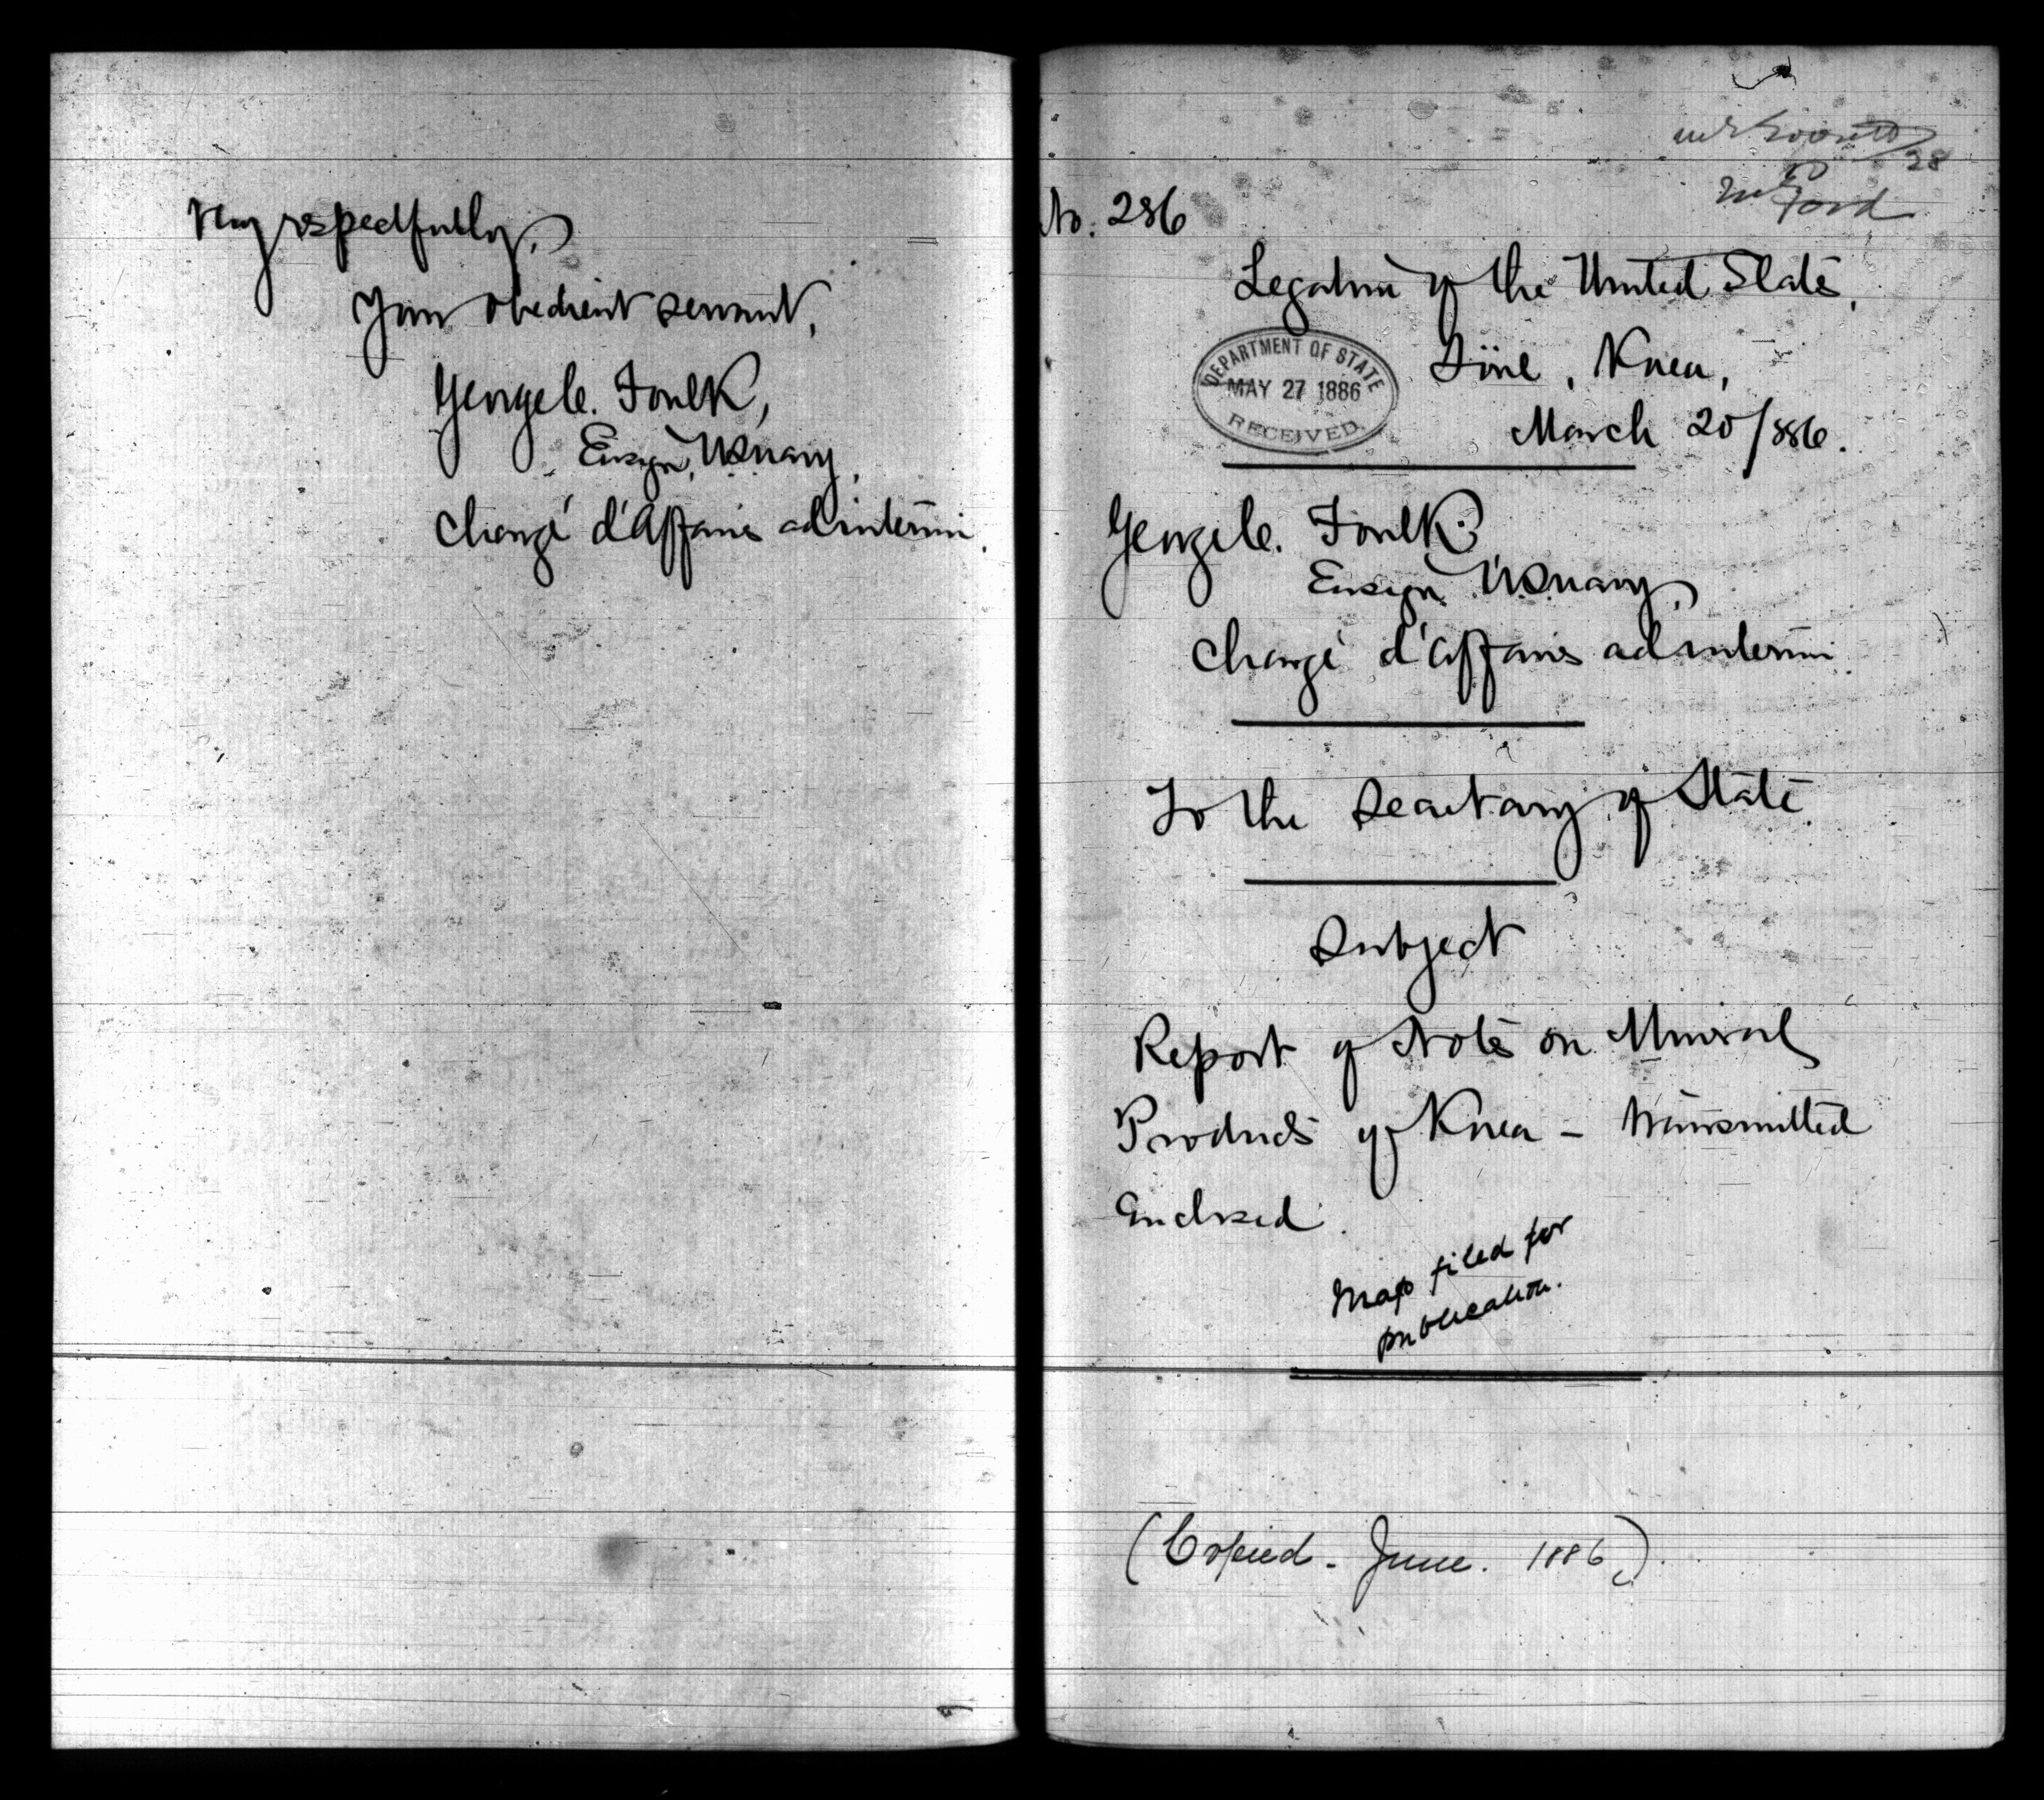 Very respectfully,
Your obedient servant,
George C. Foulk,
Ensign, U.S. Navy,
Chargé d'Affaires ad interim.
Ford
No. 286
Legation of the United States,
Söul, Korea,
March 20/886.
DEPARTMENT OF STATE
MAY 27 1886
RECEIVED.
George C. Foulk.
Ensign U.S. Navy,
Chargé d'Affaires ad interim.
To the Secretary of State
Subject
Report of Notes on Mineral
Products of Korea – transmitted
Enclosed.
Map filed for
publication.
(Copied - June. 1886.)